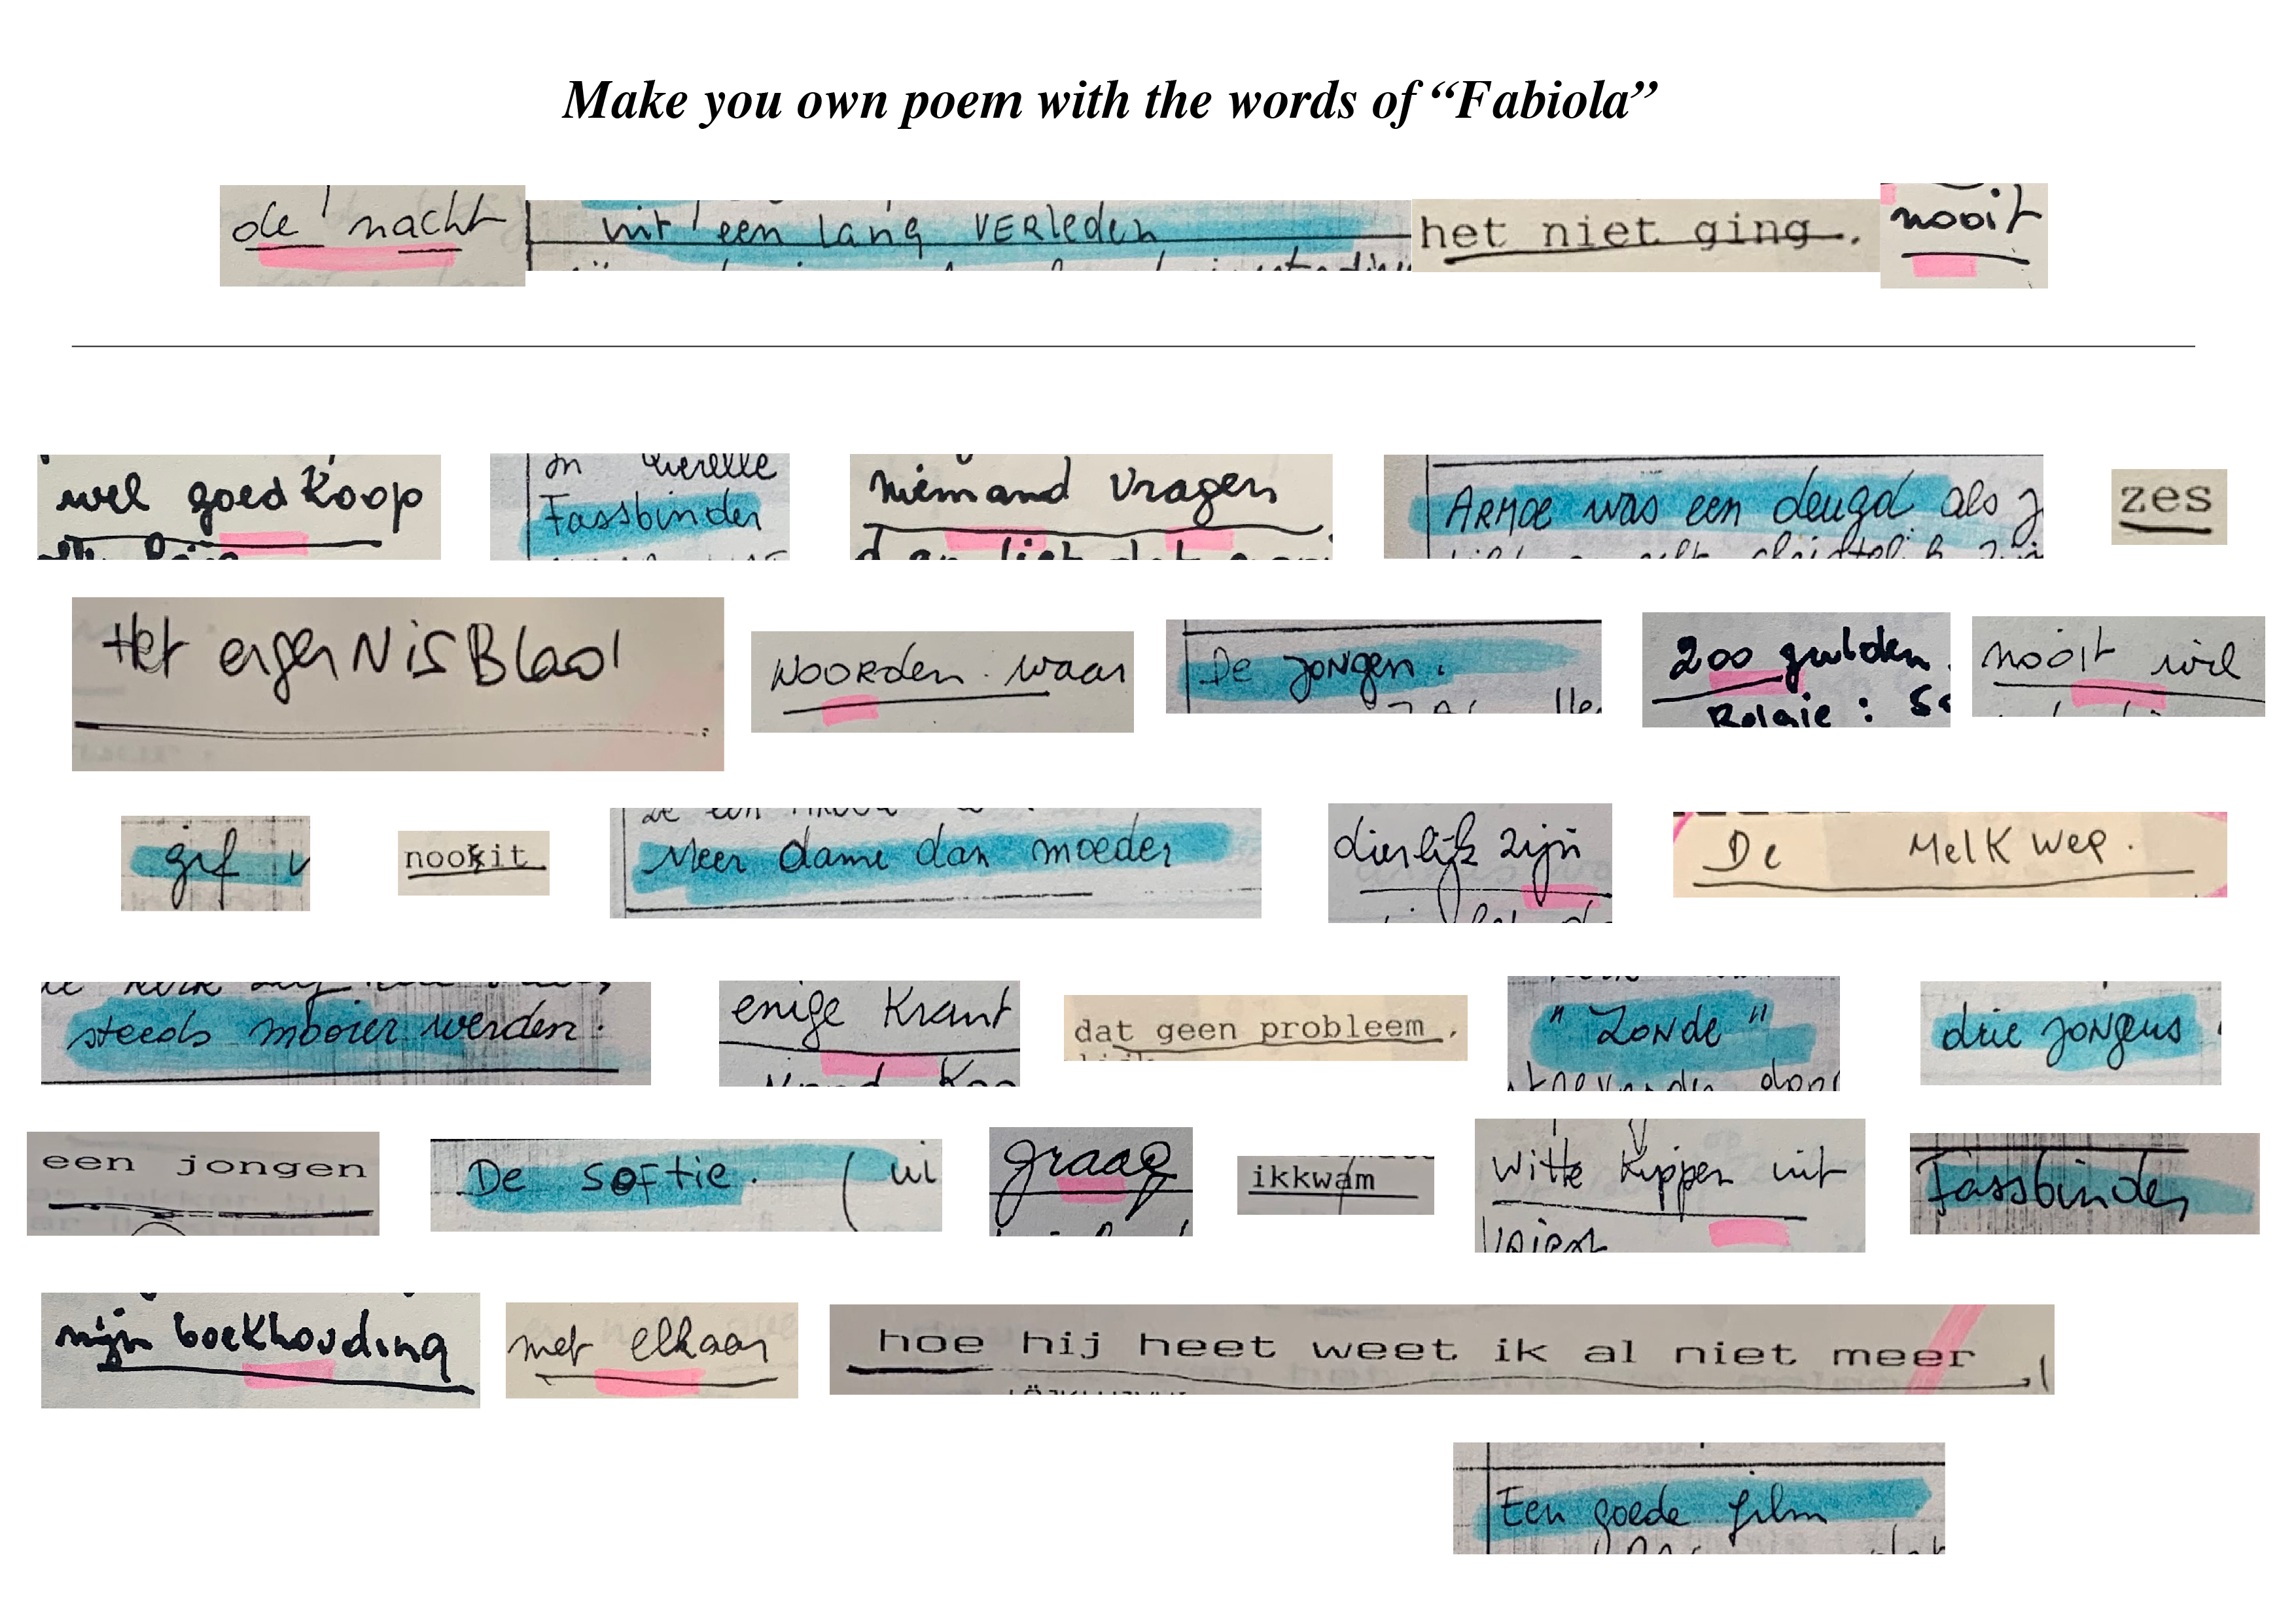 Make you own poem with the words of “Fabiola”
de nacht uit een lang VERleden het niet ging. nooit
wel goedkoop In Querelle Fassbinder niemand vragen ARMOE was een deugd als zes
Het ergerNiSBlad WOORDEN waar De JONgen. 200 gulden. nooit wil
Relaie :
gif nookit Meer dame dan moeder dierlijk zijn De MelKweg.
steeds mooier werden. enige Krant dat geen probleem. "Zonde" drie JONgens
een jongen De SOFtie. ( graag ikkwam Witte Kippen uit Fassbinder
mijn boekhouding met elkaar hoe hij heet weet ik al niet meer
Een goede film